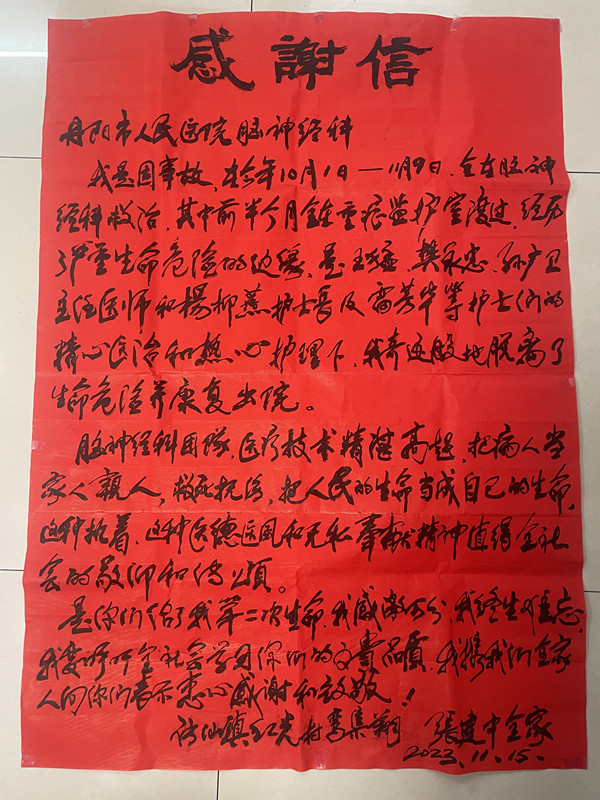 感謝信
丹阳市人民医院脑神经科
我是因事故,在今年10月1日—11月9日,全在脑神
经科救治,其中前半个月全在重症监护室渡过,经历
了严重生命危险的边缘,是王猛,樊永忠,孙广卫
主任医师和楊柳燕护士長及雷芳华等护士们的
精心医治和热心护理下,我奇迹般地脱离了
生命危险并康复出院。
脑神经科团隊,医疗技术精湛高超,把病人当
家人親人,救死扶伤,把人民的生命当成自己的生命,
这种执着,这种医德医风和无私奉献精神值得全社
会的敬仰和传頌。
是你们给了我第二次生命,我感激万分,我终生难忘,
我要呼吁全社会学习你们的高贵品質,我携我们全家
人向你们表示衷心感谢和致敬!
访仙鎮红光村 張建中全家
2023.11.15.